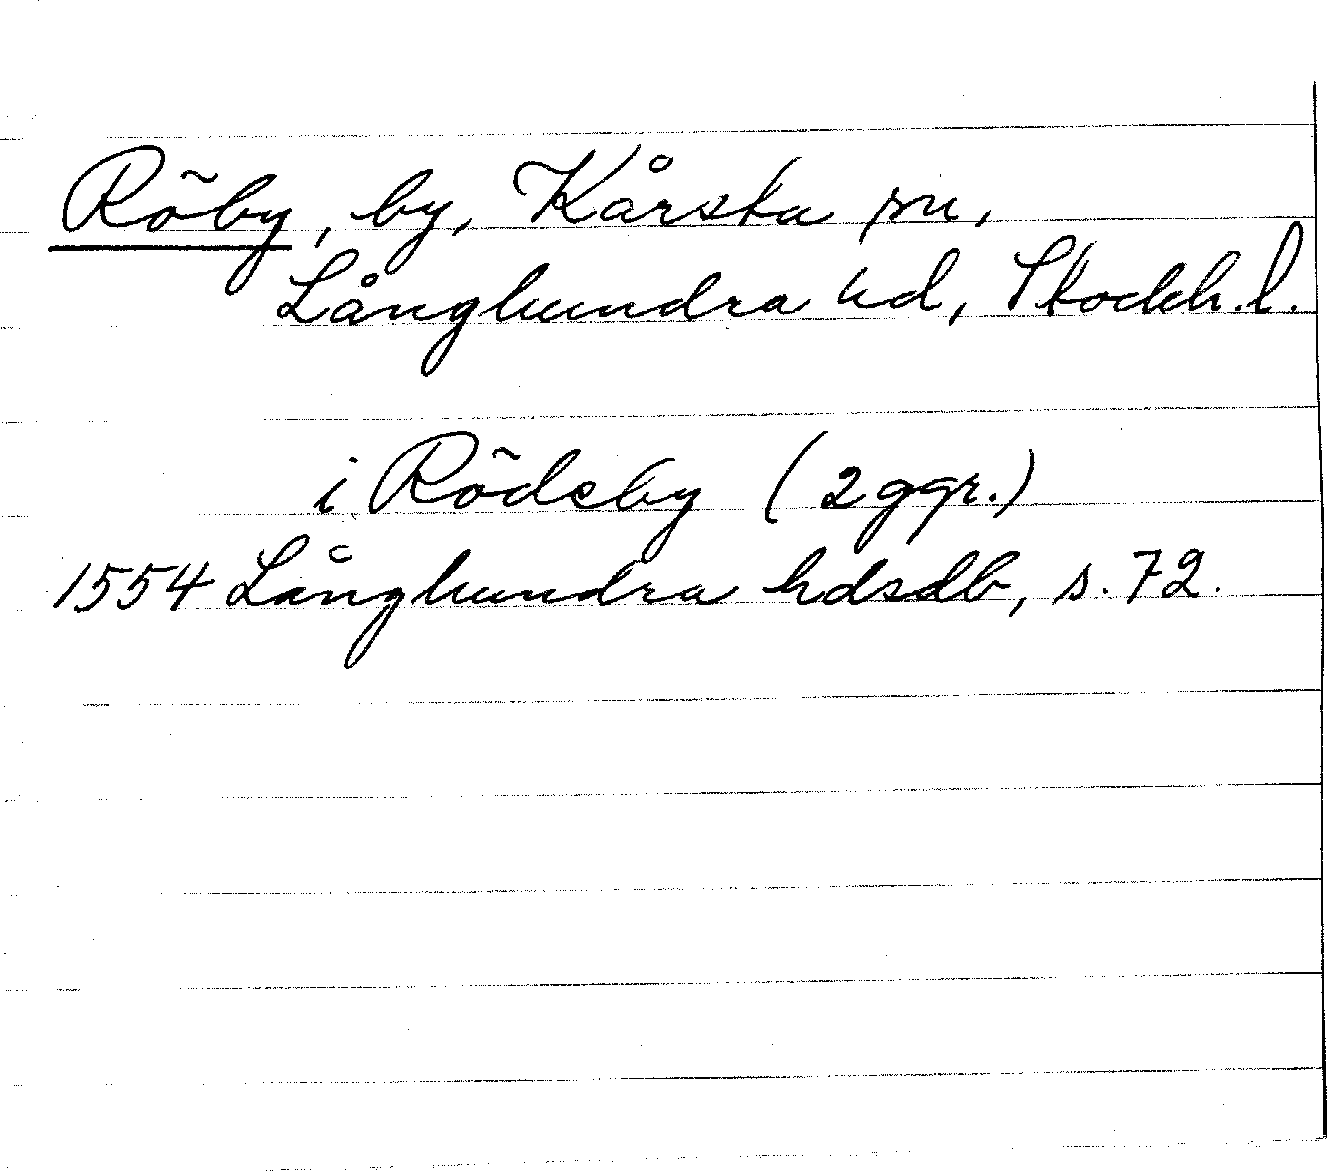 Röby, by, Kårsta sn,
Långhundra hd, Stockh. l.
i Rödeby (2 ggr.)
1554 Långhundra hdsdb, s. 72.